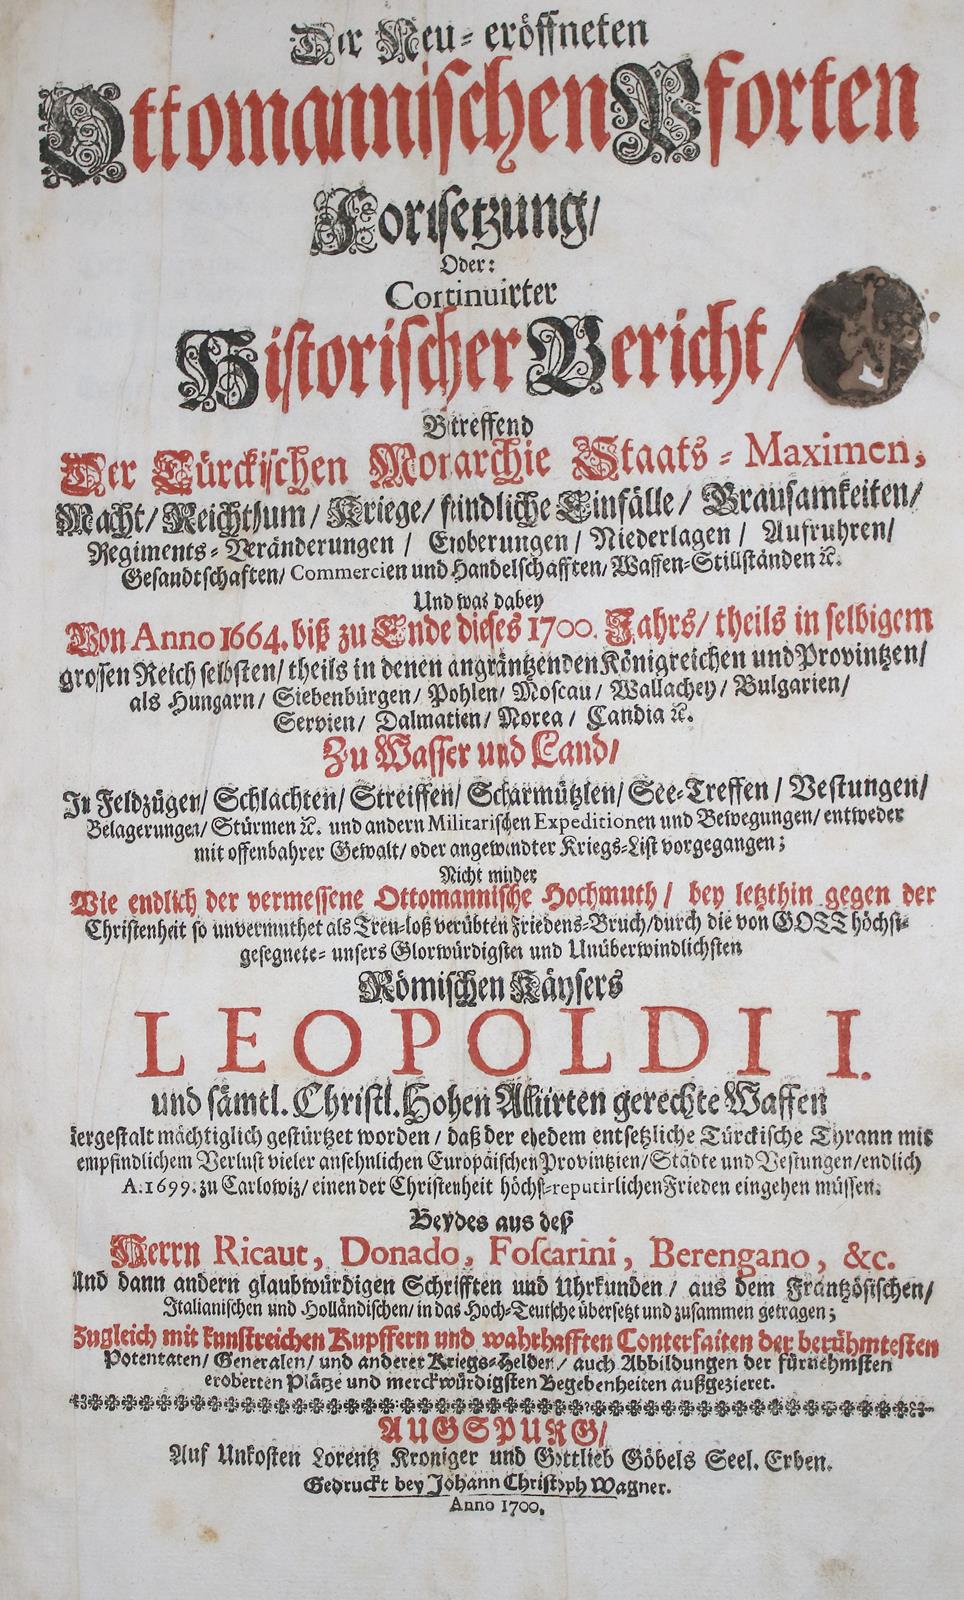 Der Neu-eröffneten
Ottomannischen Pforten
Fortsetzung/
Oder:
Continuirter
Historischer Bericht/
Betreffend
Der Türckischen Monarchie Staats-Maximen,
Macht/ Reichthum/ Kriege/ feindliche Einfälle/ Grausamkeiten/
Regiments-Veränderungen/ Eroberungen/ Niederlagen/ Aufruhren/
Gesandtschafften/ Commercien und Handelschafften/ Waffen-Stillständen ꝛc.
Und was dabey
Von Anno 1664. biß zu Ende dieses 1700. Jahrs/ theils in selbigem
grossen Reich selbsten/ theils in denen angräntzenden Königreichen und Provintzen/
als Hungarn/ Siebenbürgen/ Pohlen/ Moscau/ Wallachey/ Bulgarien/
Servien/ Dalmatien/ Morea/ Candia ꝛc.
Zu Wasser und Land/
In Feldzügen/ Schlachten/ Streiffen/ Scharmützlen/ See-Treffen/ Vestungen/
Belagerungen/ Stürmen ꝛc. und andern Militarischen Expeditionen und Bewegungen/ entweder
mit offenbahrer Gewalt/ oder angewendter Kriegs-List vorgegangen;
Nicht minder
Wie endlich der vermessene Ottomannische Hochmuth/ bey letzthin gegen der
Christenheit so unvermuthet als Treu-loß verübten Friedens-Bruch/ durch die von GOTT höchst-
gesegnete- unsers Glorwürdigsten und Unüberwindlichsten
Römischen Käysers
LEOPOLDI I.
und sämtl. Christl. Hohen Alliirten gerechte Waffen
dergestalt mächtiglich gestürtzet worden/ daß der ehedem entsetzliche Türckische Tyrann mit
empfindlichem Verlust vieler ansehnlichen Europäischen Provintzien/ Städte und Vestungen/ endlich
A. 1699. zu Carlowiz/ einen der Christenheit höchst-reputirlichen Frieden eingehen müssen.
Beydes aus deß
Herrn Ricaut, Donado, Foscarini, Berengano, &c.
Und dann andern glaubwürdigen Schrifften und Uhrkunden/ aus dem Frantzösischen/
Italianischen und Holländischen/ in das Hoch-Teutsche übersetzt und zusammen getragen;
Zugleich mit kunstreichen Kupffern und wahrhafften Conterfaiten der berühmtesten
Potentaten/ Generalen/ und anderer Kriegs-Helden/ auch Abbildungen der fürnehmsten
eroberten Plätze und merckwürdigsten Begebenheiten außgezieret.
AUGSPURG/
Auf Unkosten Lorentz Kroniger und Gottlieb Göbels Seel. Erben.
Gedruckt bey Johann Christoph Wagner.
Anno 1700.